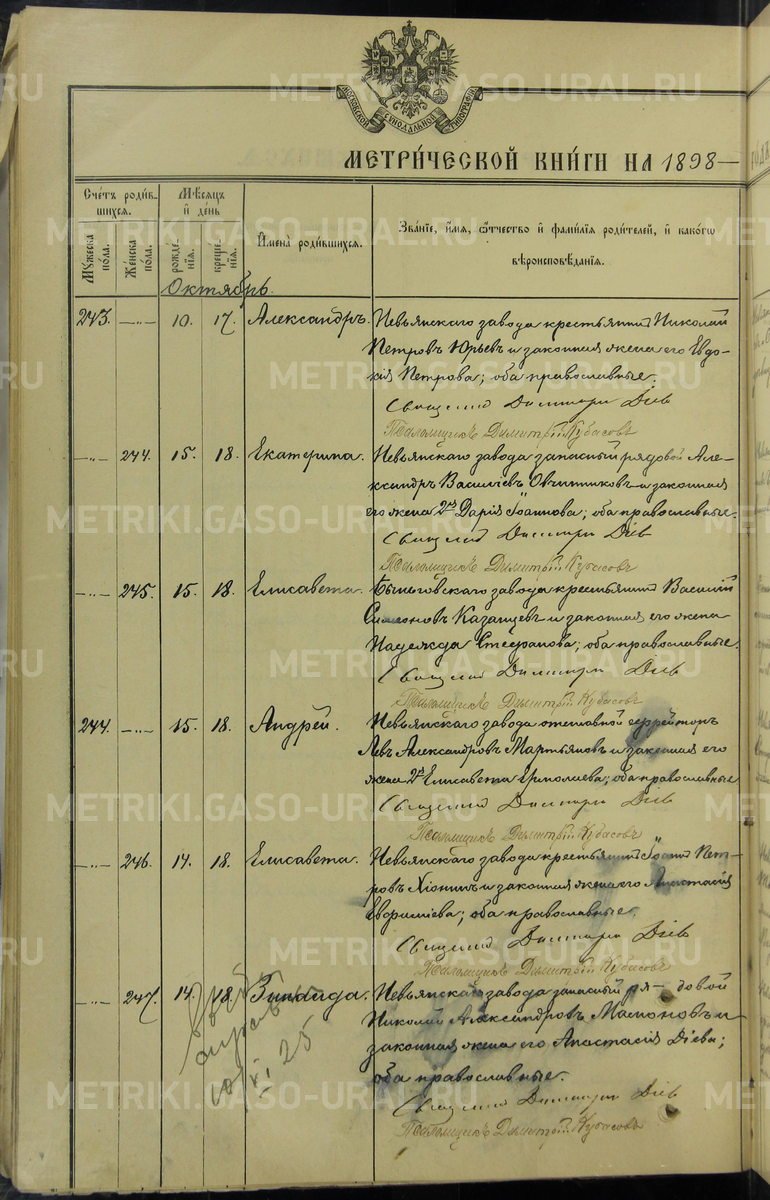 METRIKI.GASO-URAL.RU
МОСКОВСКОЙ СѴНОДАЛЬНОЙ ТИПОГРАФІИ
МЕТРИ́ЧЕСКОЙ КНИ́ГИ НА 1898
Сче́тъ роди́в-
шихся.
Мѣ́сяцъ
и҆ де́нь
И҆мена̀ роди́вшихся.
Зва́нїе, и҆́мя, ѻ҆́тчество и҆ фамилїя роди́телей, и҆ како́гѡ
вѣроисповѣ́данїя.
Мꙋ́жеска по́ла.
Же́нска по́ла.
рожде́-нїя.
креще́-нїя.
Октябрь.
243. —„— 10. 17. Александръ. Невьянскаго завода крестьянинъ Николай
Петровъ Юрьевъ и законная жена его Евдо-
кія Петрова; оба православные.
Священникъ Димитрій Діевъ
Псаломщикъ Димитрій Кубасовъ
—„— 244. 15. 18. Екатерина. Невьянскаго завода запасный рядовой Але-
ксандръ Василіевъ Овчинниковъ и законная
его жена Дарія Іоаннова; оба православные.
Священникъ Димитрій Діевъ
Псаломщикъ Димитрій Кубасовъ
—„— 245. 15. 18. Елисавета. Быньговскаго завода крестьянинъ Василій
Симеоновъ Казанцевъ и законная его жена
Надежда Стефанова; оба православные.
Священникъ Димитрій Діевъ
Псаломщикъ Димитрій Кубасовъ
244. —„— 15. 18. Андрей. Невьянскаго завода отставной ефрейторъ
Левъ Александровъ Мартьяновъ и законная его
жена Елисавета Ермолаева; оба православные
Священникъ Димитрій Діевъ
Псаломщикъ Димитрій Кубасовъ
—„— 246. 14. 18. Елисавета. Невьянскаго завода крестьянинъ Іоаннъ Пет-
ровъ Хіонинъ и законная жена его Анастасія
Евфиміева; оба православные.
Священникъ Димитрій Діевъ
Псаломщикъ Димитрій Кубасовъ
—„— 247. 14. 18. Зинаида. Невьянскаго завода запасный ря-довой
Николай Александровъ Мамоновъ и
законная жена его Анастасія Діева;
оба православные.
Священникъ Димитрій Діевъ
Псаломщикъ Димитрій Кубасовъ
25